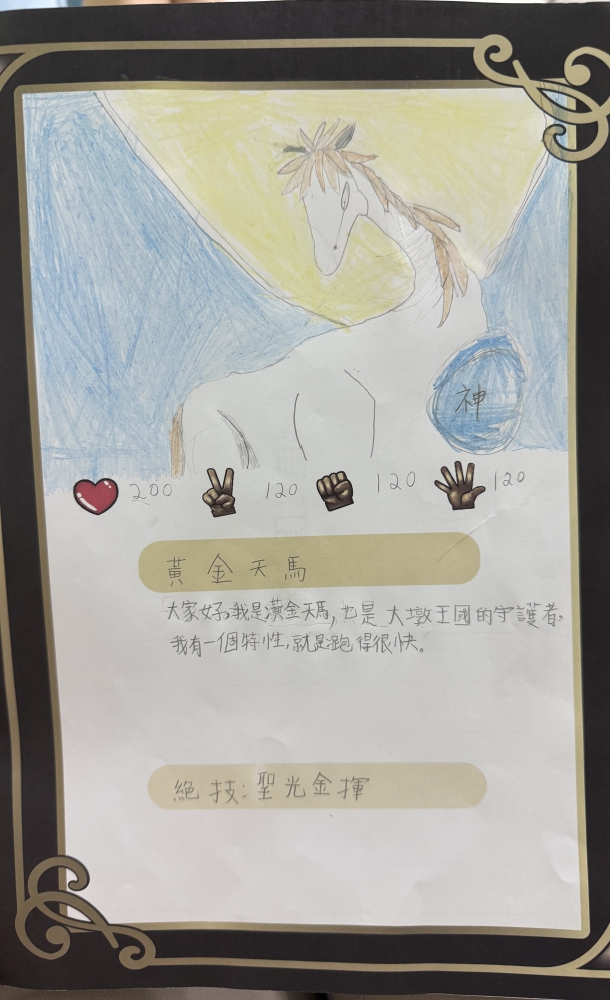 神
200 120 120 120
黃金天馬
大家好,我是黃金天馬,也是大墩王國的守護者,
我有一個特性,就是跑得很快。
絕技:聖光金揮